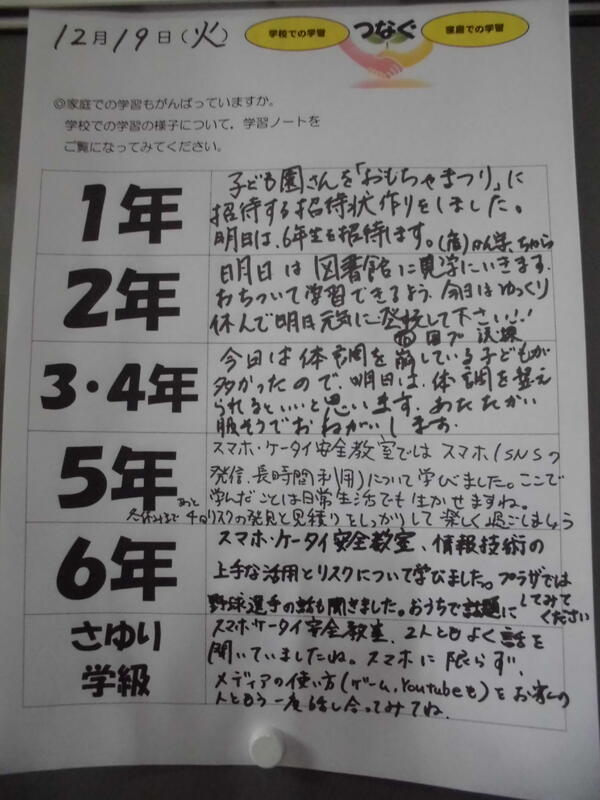 12月19日(火)
学校での学習 つなぐ 家庭での学習
◎家庭での学習もがんばっていますか。
学校での学習の様子について、学習ノートを
ご覧になってみてください。
1年
子ども園さんを「おもちゃまつり」に
招待する招待状作りをしました。
明日は、6年生を招待します。
2年
明日は図書館に見学にいきます。
おちついて学習できるよう、今日はゆっくり
休んで明日元気に登校して下さい!!
3・4年
今日は体調を崩している子どもが
多かったので、明日は、体調を整え
られるといいと思います。あたたかい
服そうでおねがいします。
5年
スマホ・ケータイ安全教室ではスマホ(SNSの
発信、長時間利用)について学びました。ここで
学んだことは日常生活でも生かせますね。
冬休みまで あと4日 リスクの発見と見積りをしっかりして楽しく過ごしましょう
6年
スマホ・ケータイ安全教室、情報技術の
上手な活用とリスクについて学びました。プラザでは
野球選手の話も聞きました。おうちで話題にしてみて
ください
さゆり
学級
スマホケータイ安全教室、2人ともよく話を
聞いていましたね。スマホに限らず、
メディアの使い方(ゲーム、Youtubeも)をお家の
人ともう一度話し合ってみてね。